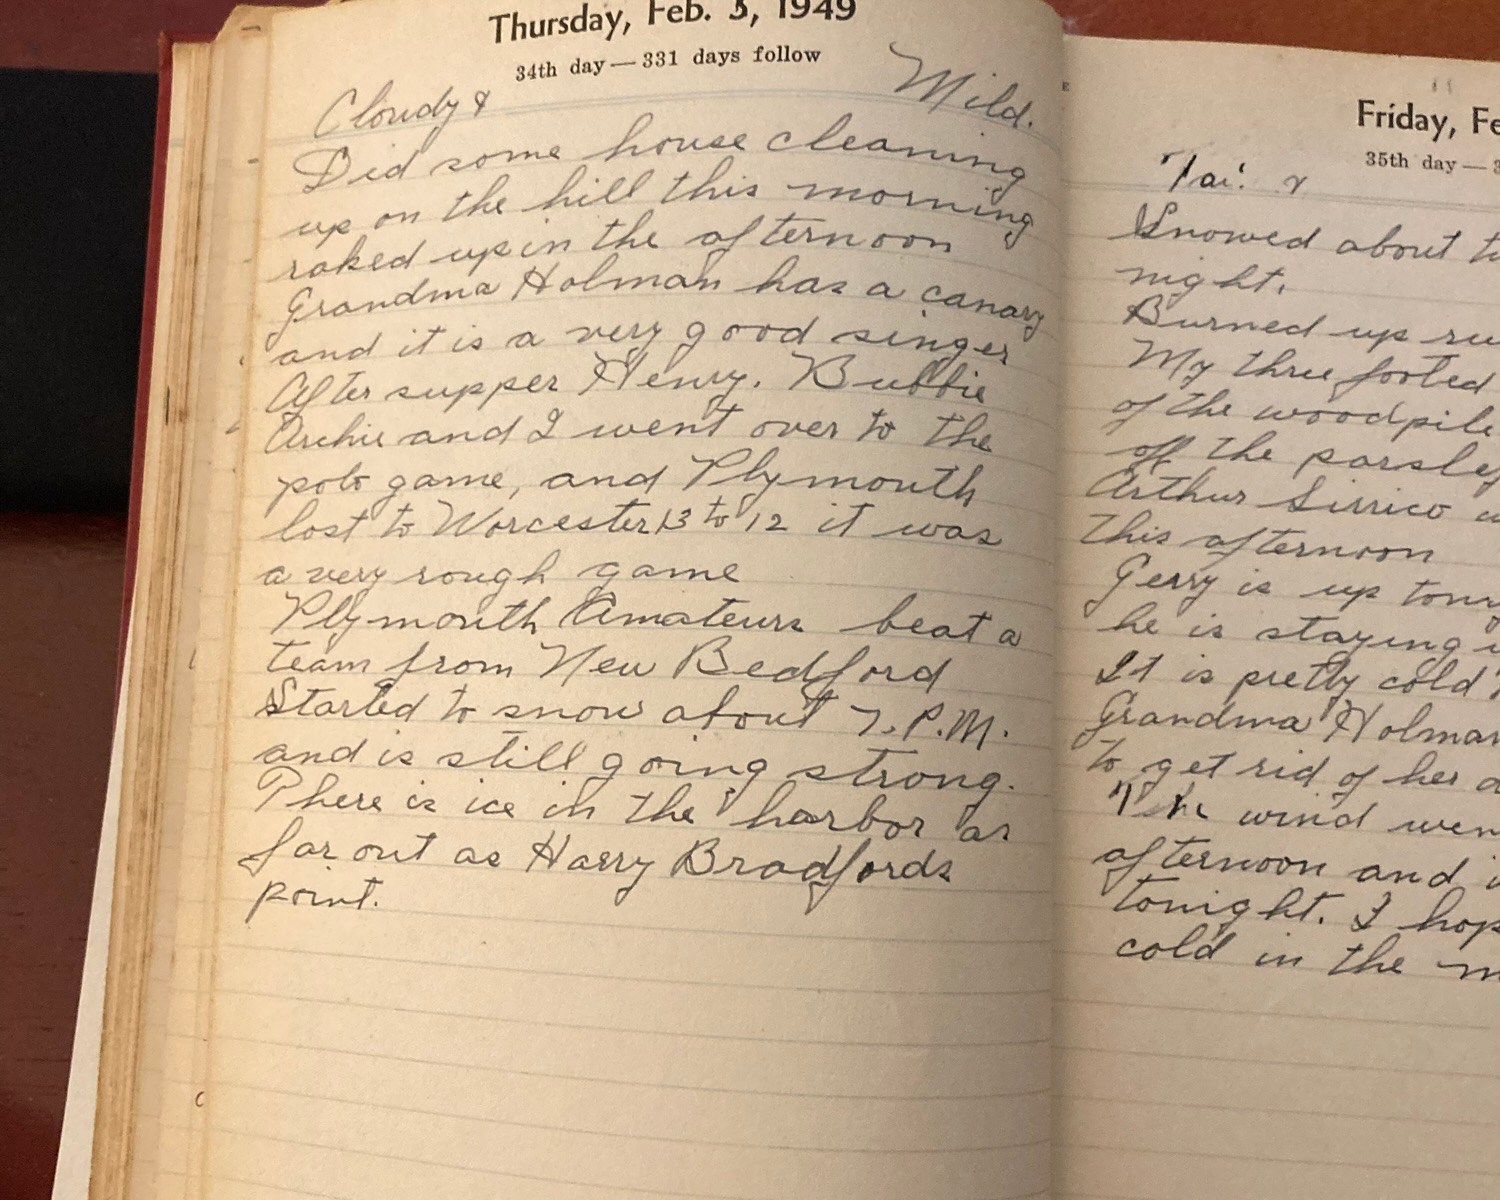 Thursday, Feb. 3, 1949
34th day — 331 days follow
Cloudy & Mild.
Did some house cleaning
up on the hill this morning
raked up in the afternoon
Grandma Holman has a canary
and it is a very good singer
After supper Henry. Bubbie
Archie and I went over to the
polo game, and Plymouth
lost to Worcester 13 to 12 it was
a very rough game
Plymouth Amateurs beat a
team from New Bedford
Started to snow about 7. P.M.
and is still going strong.
There is ice in the harbor as
far out as Harry Bradfords
point.
Friday, Fe
35th day — 3
&
Snowed about
night.
Burned up
My three footed
of the woodpile
off the parsley
Arthur Sirrico
this afternoon
Gerry is up
he is staying
It is pretty cold
Grandma Holman
to get rid of her
The wind
afternoon and
tonight. I
cold in the